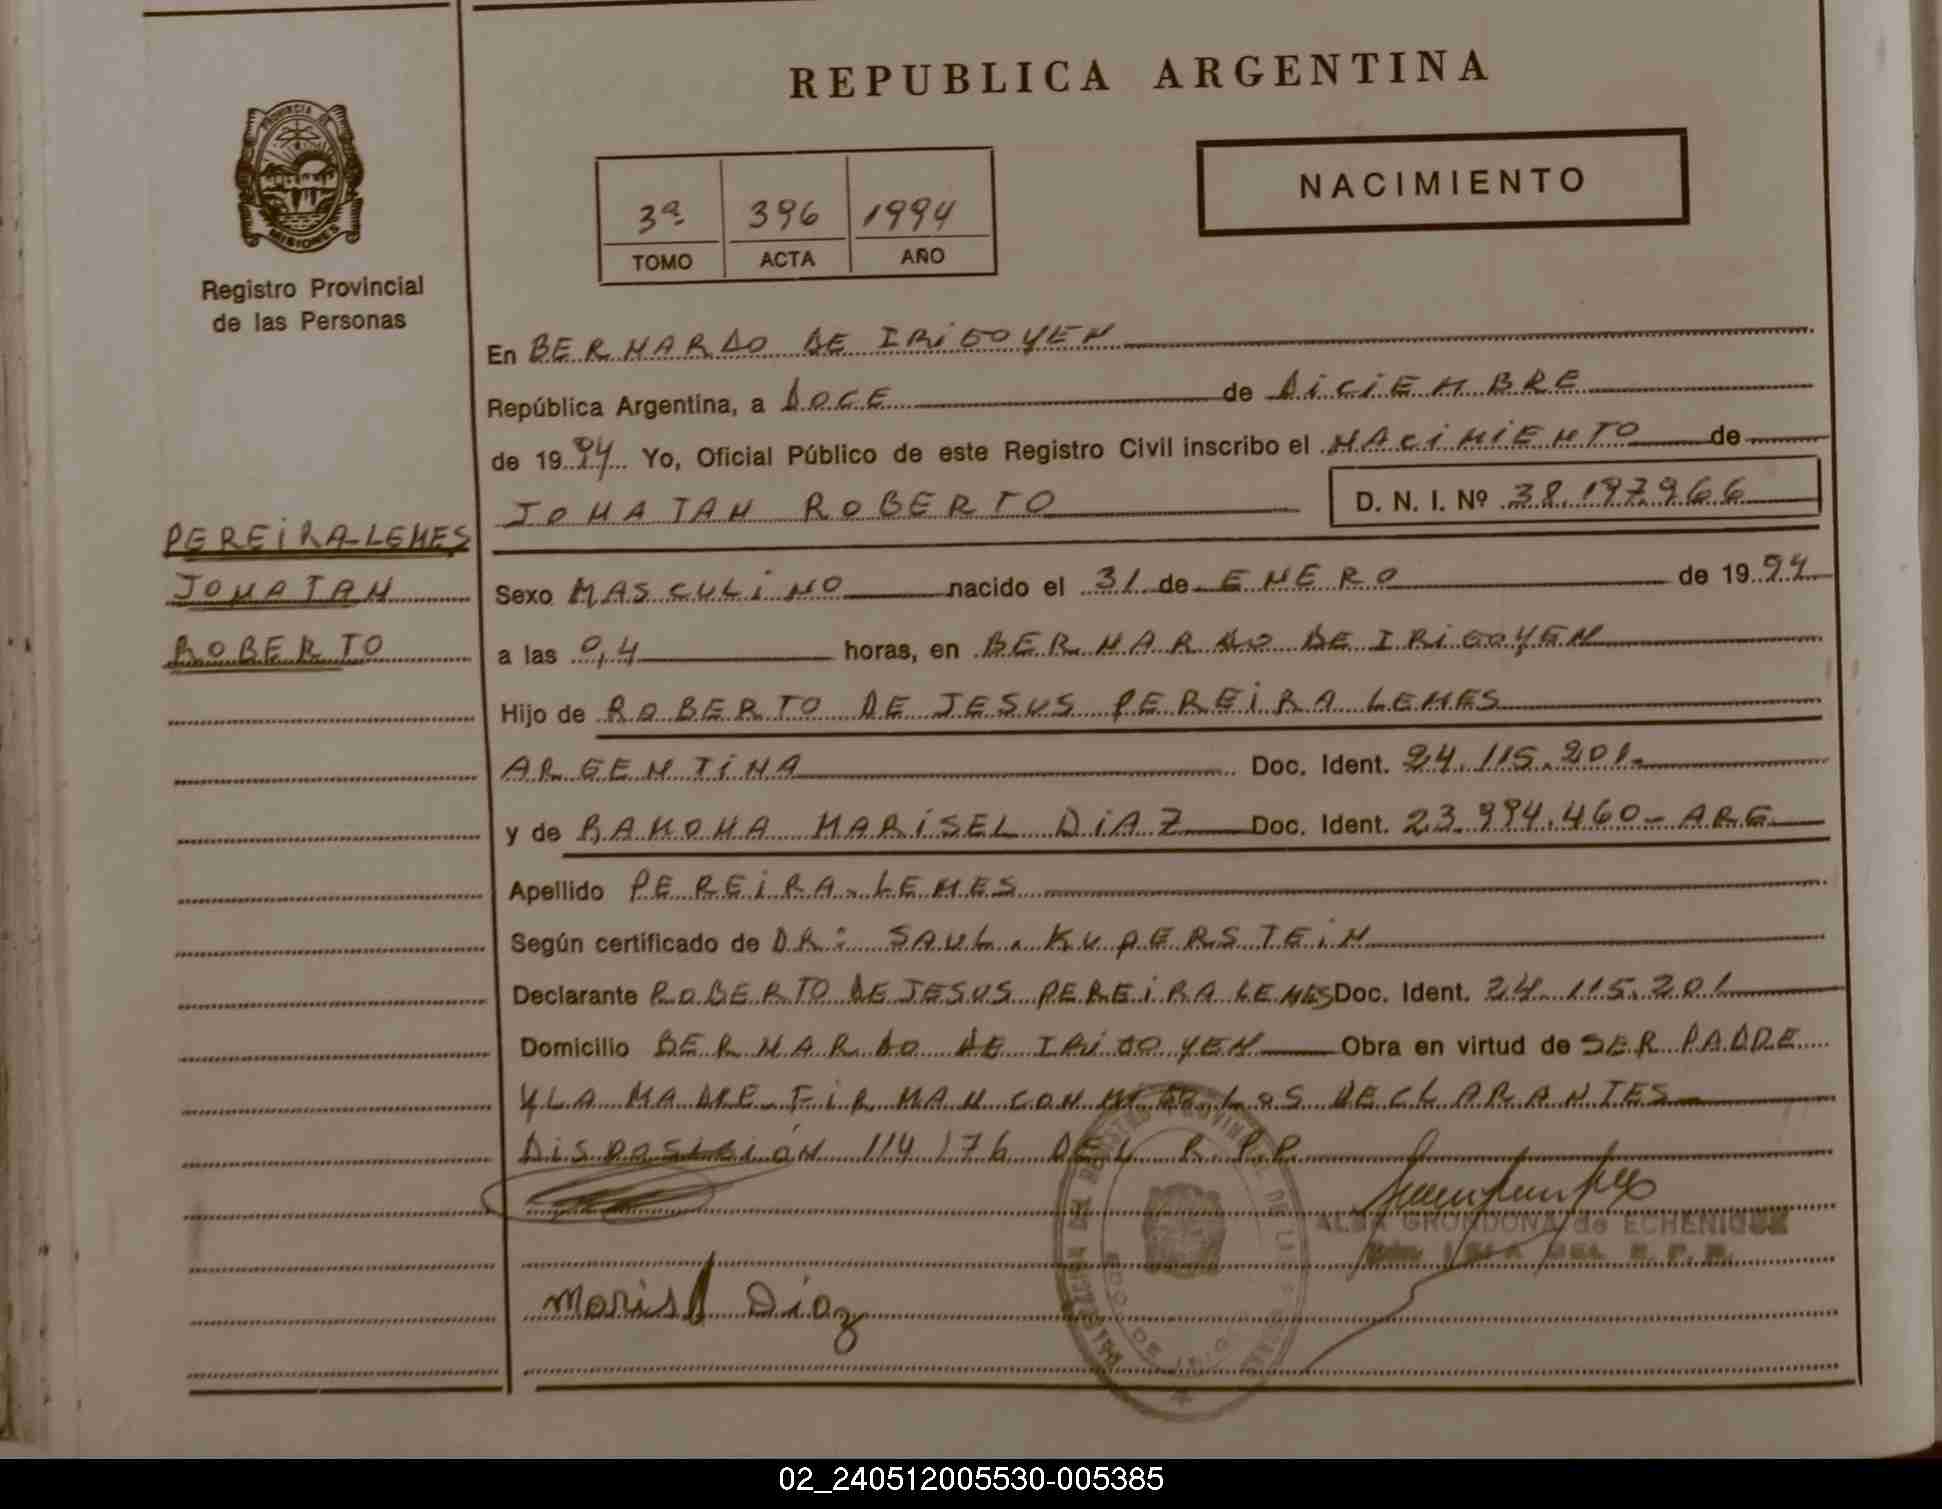 REPUBLICA ARGENTINA
NACIMIENTO
PROVINCIA DE
MISIONES
Registro Provincial
de las Personas
3ª 396 1994
TOMO ACTA AÑO
En BERNARDO DE IRIGOYEN
República Argentina, a DOCE de DICIEMBRE
de 1994 Yo, Oficial Público de este Registro Civil inscribo el NACIMIENTO de
JONATAN ROBERTO D. N. I. Nº 38.197.966
PEREIRA-LEMES
JONATAN
ROBERTO
Sexo MASCULINO nacido el 31 de ENERO de 1994
a las 0,4 horas, en BERNARDO DE IRIGOYEN
Hijo de ROBERTO DE JESUS PEREIRA LEMES
ARGENTINA Doc. Ident. 24.115.201-
y de RAMONA MARISEL DIAZ Doc. Ident. 23.994.460- ARG
Apellido PEREIRA-LEMES
Según certificado de DR: SAUL. KUPERSTEIN
Declarante ROBERTO DE JESUS PEREIRA LEMES Doc. Ident. 24.115.201
Domicilio BERNARDO DE IRIGOYEN Obra en virtud de SER PADRE
Y LA MADRE FIRMAN CONMIGO LOS DECLARANTES
DISPOSICIÓN 114/76 DEL R.P.P.
ALBA GRONDONA de ECHENIQUE
Marisel Diaz
02_240512005530-005385